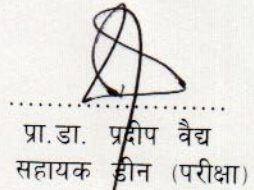 प्रा.डा. प्रदीप वैद्य
सहायक डीन (परीक्षा)